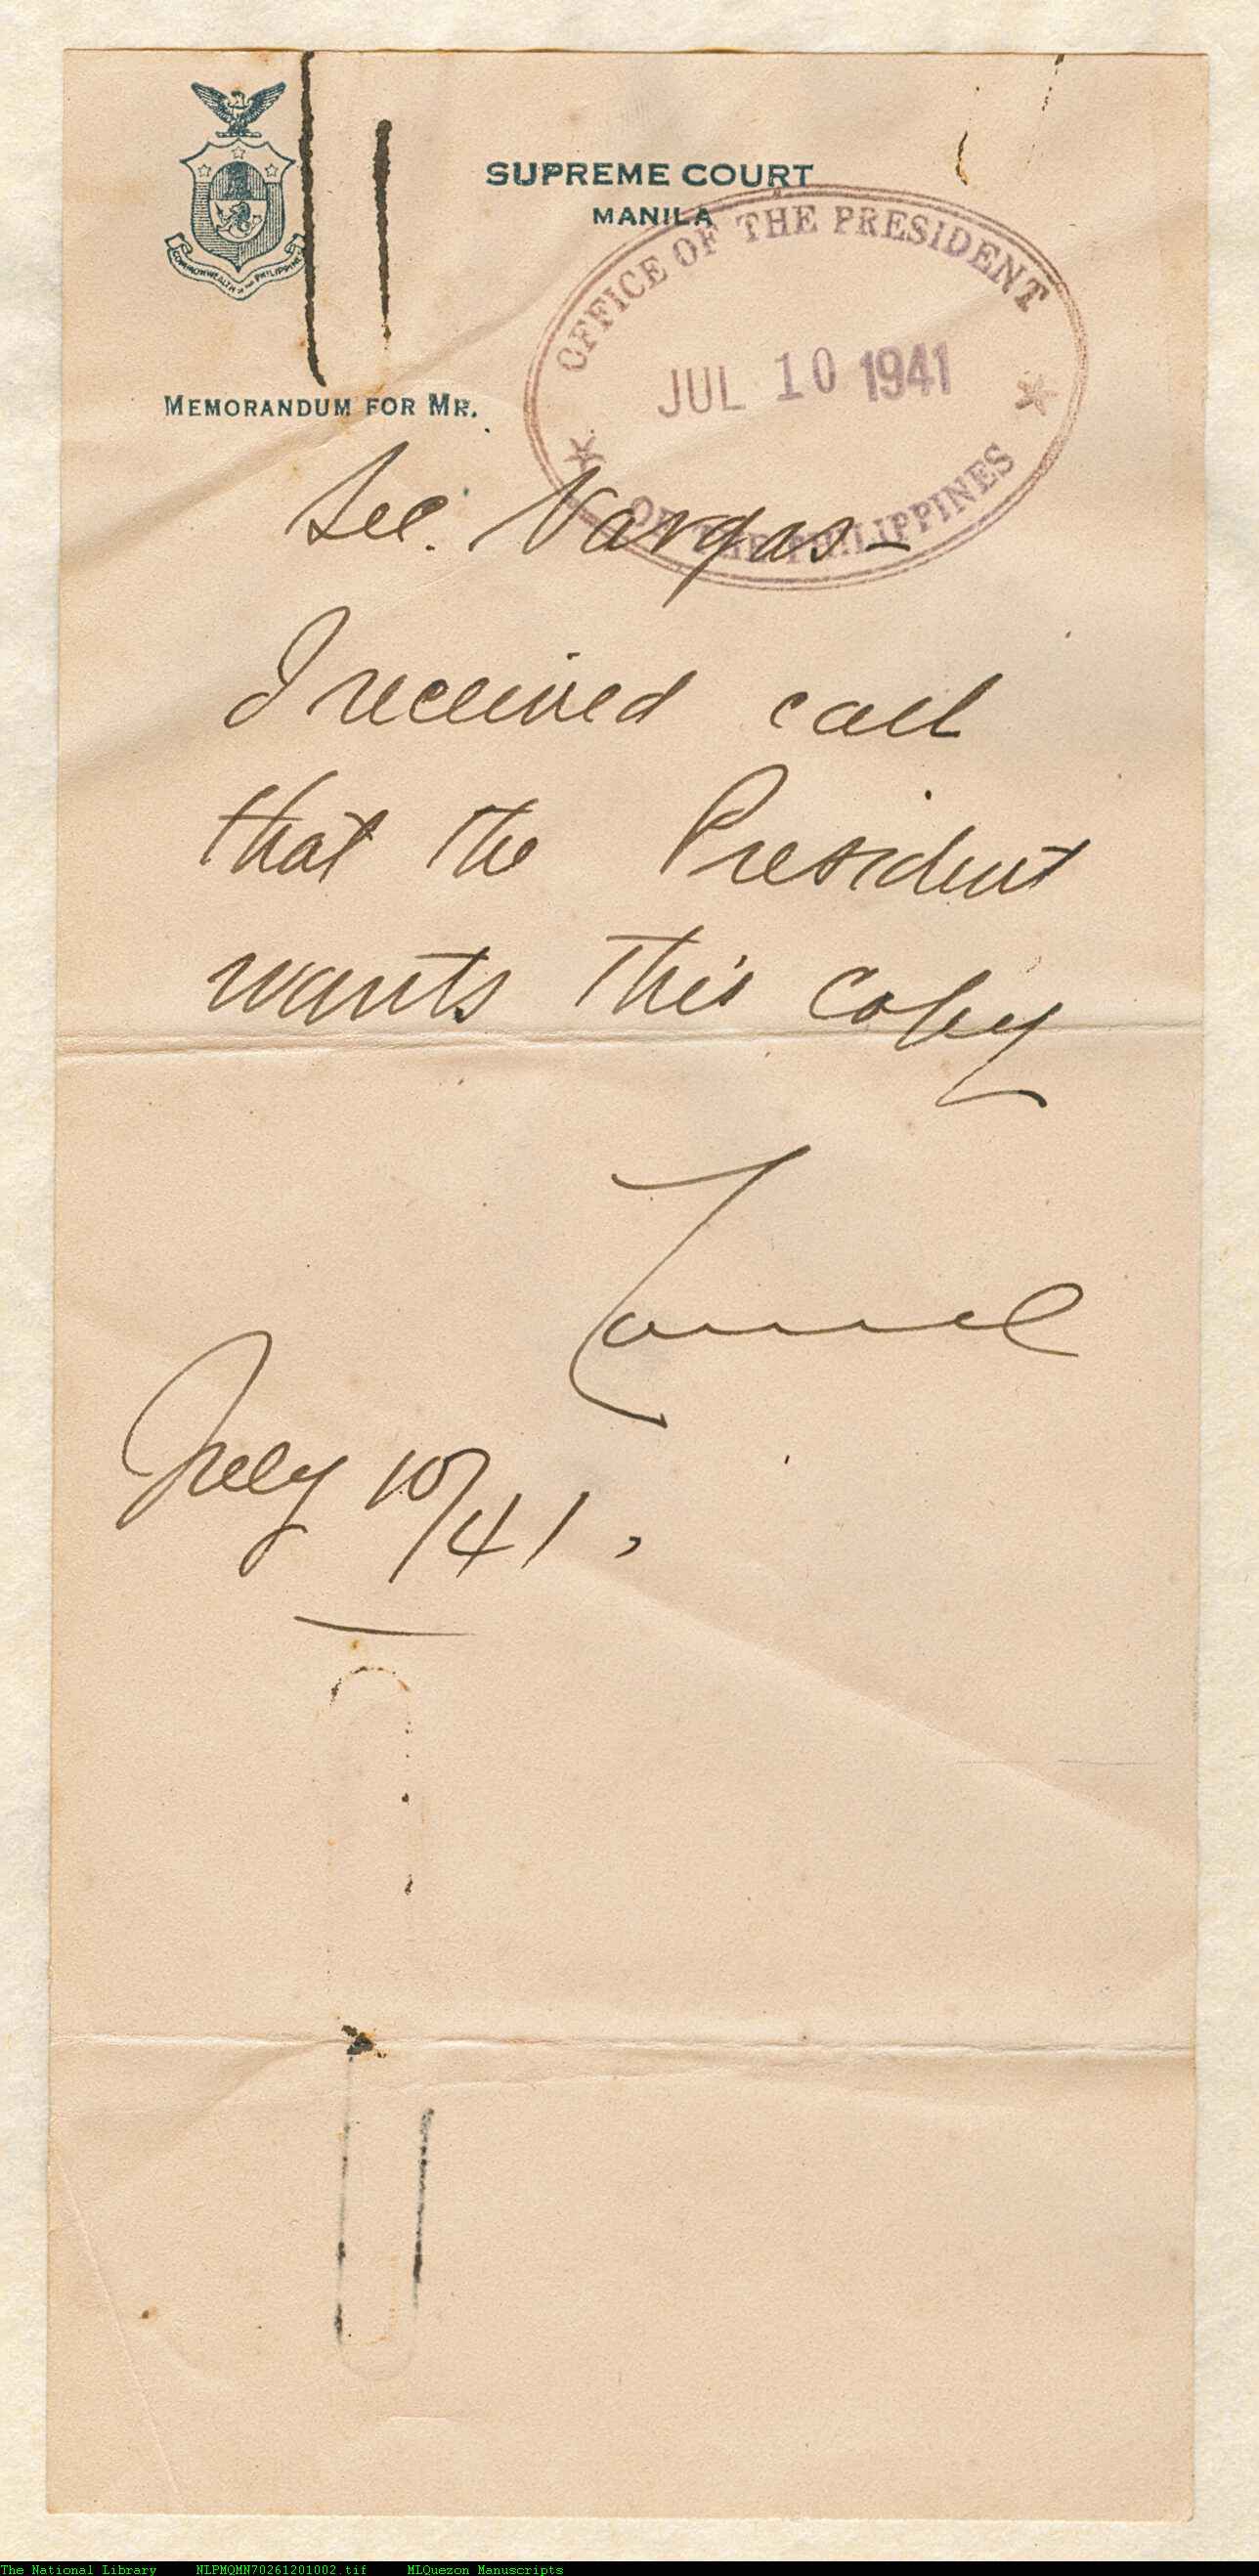 SUPREME COURT
MANILA
COMMONWEALTH OF THE PHILIPPINES
OFFICE OF THE PRESIDENT
JUL 10 1941
OF THE PHILIPPINES
MEMORANDUM FOR MR.
Sec. Vargas—
I received call
that the President
wants this copy
Laurel
July 10/41.
The National Library NLPMQMN70261201002.tif MLQuezon Manuscripts